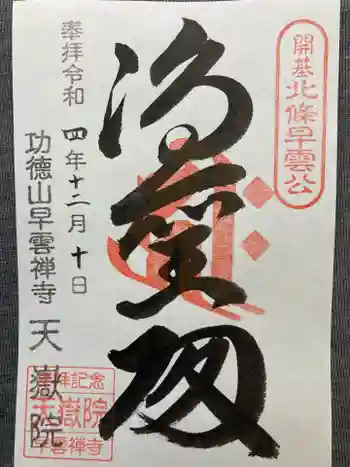 開基北條早雲公
奉拝令和四年十二月十日
功徳山早雲禅寺天嶽院
拝記念
天嶽院
早雲禅寺